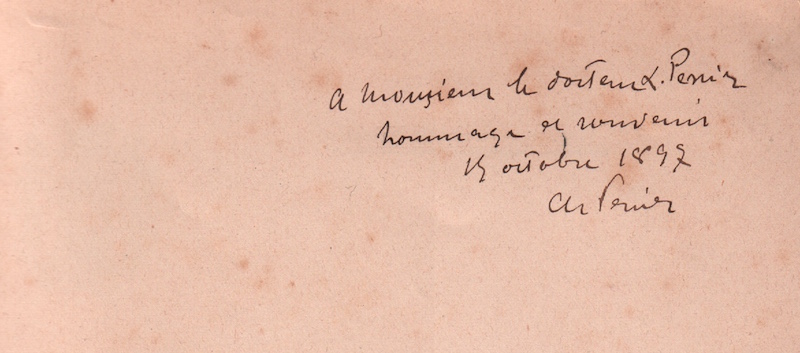 A monsieur le docteur L. Perrier
hommage et souvenir
15 octobre 1897
Ch Perier